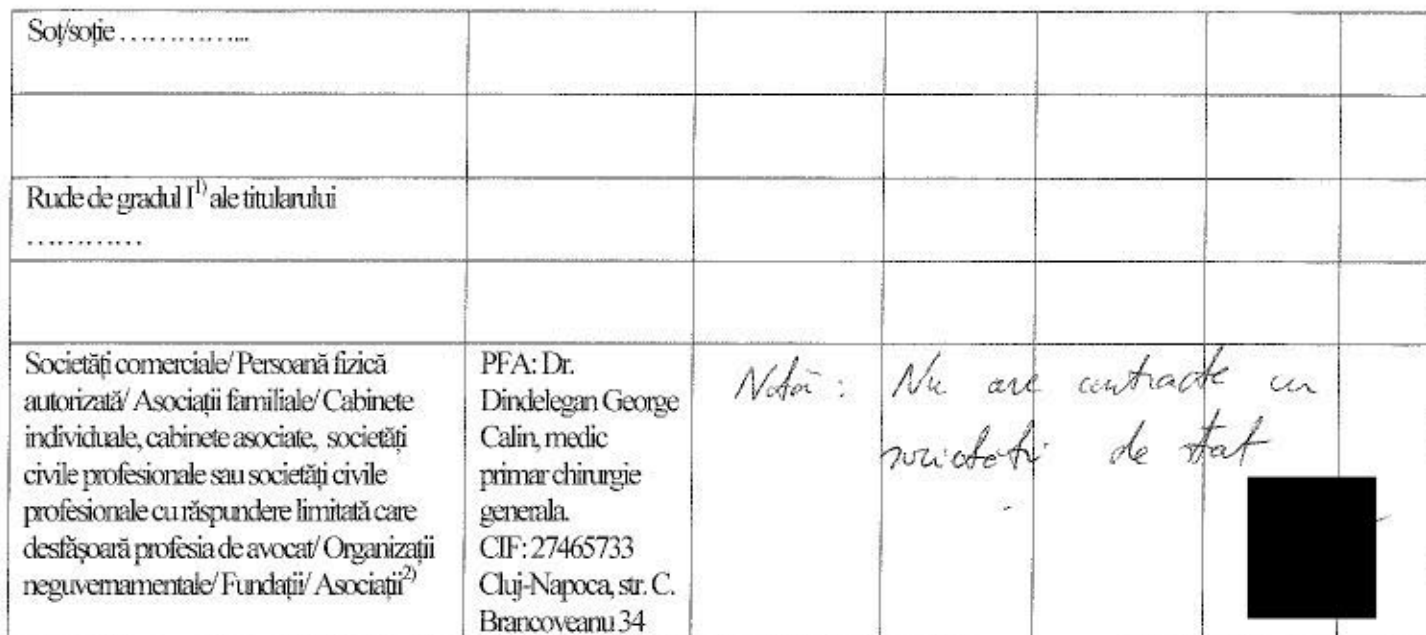 Soț/soție …………....
Rude de gradul I¹⁾ ale titularului
…………
Societăți comerciale/ Persoană fizică
autorizată/ Asociații familiale/ Cabinete
individuale, cabinete asociate, societăți
civile profesionale sau societăți civile
profesionale cu răspundere limitată care
desfășoară profesia de avocat/ Organizații
neguvernamentale/ Fundații/ Asociații²⁾
PFA: Dr.
Dindelegan George
Calin, medic
primar chirurgie
generala.
CIF: 27465733
Cluj-Napoca, str. C.
Brancoveanu 34
Notă: Nu are contracte cu
societăți de stat